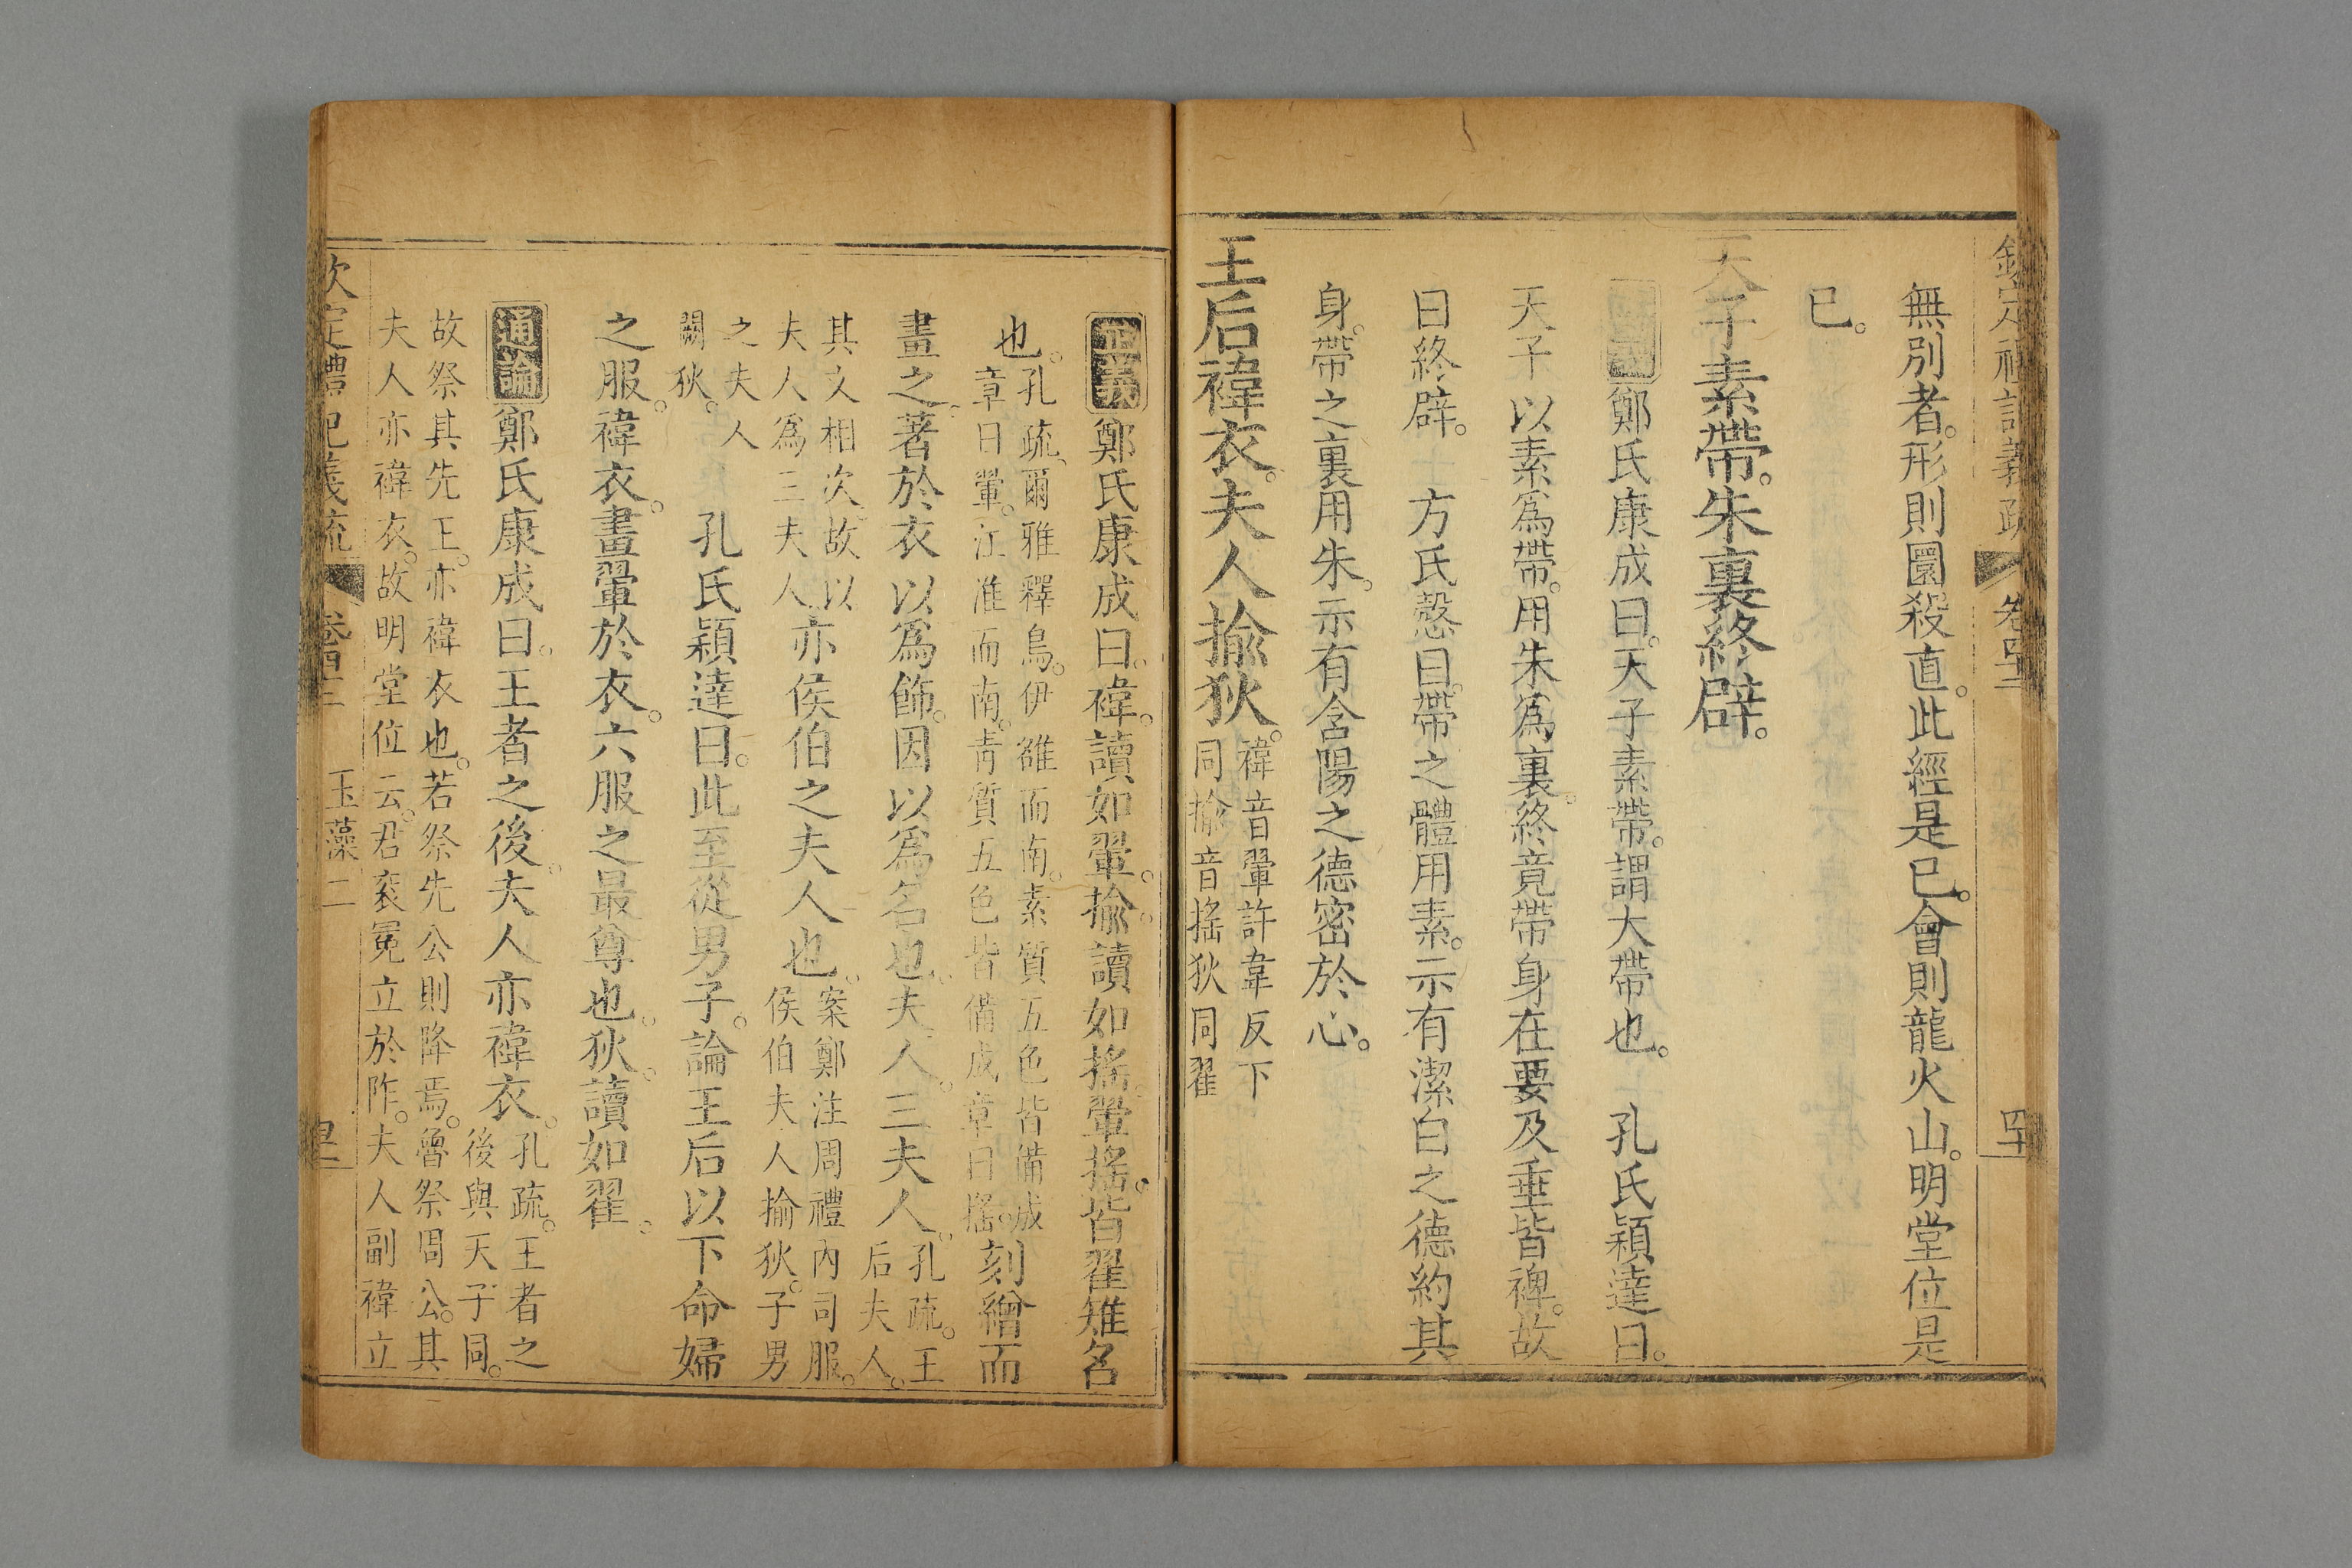 欽定禮記義疏 卷四十二 四十
無別者。形則圜殺直。此經是已。會則龍火山。明堂位是
已。
天子素帶。朱裏終辟。
鄭氏康成曰。天子素帶。謂大帶也。 孔氏穎達曰。
天子以素爲帶。用朱爲裏。終竟帶身在要及垂皆裨。故
曰終辟。 方氏慤曰。帶之體用素。示有潔白之德約其
身。帶之裏用朱。示有含陽之德密於心。
王后褘衣。夫人揄狄。
褘音翬許韋反下
同揄音搖狄同翟
正義鄭氏康成曰。褘。讀如翬。揄。讀如搖。翬搖。皆翟雉名
也。
孔疏。爾雅釋鳥。伊雒而南。素質五色皆備成
章曰翬。江淮而南。靑質五色皆備成章曰搖。
刻繒而
畫之。著於衣以爲飾。因以爲名也。夫人。三夫人。
孔疏。王
后夫人。
其文相次。故以
夫人爲三夫人。
亦侯伯之夫人也。
案鄭注周禮內司服。
侯伯夫人揄狄。子男
之夫人
闕狄。
孔氏穎達曰。此至從男子。論王后以下命婦
之服。褘衣。畫翬於衣。六服之最尊也。狄。讀如翟。
通論鄭氏康成曰。王者之後。夫人亦褘衣。
孔疏。王者之
後與天子同。
故祭其先王。亦褘衣也。若祭先公則降焉。魯祭周公。其
夫人亦褘衣。故明堂位云。君袞冕立於阼。夫人副褘立
欽定禮記義疏 卷四十二 玉藻二